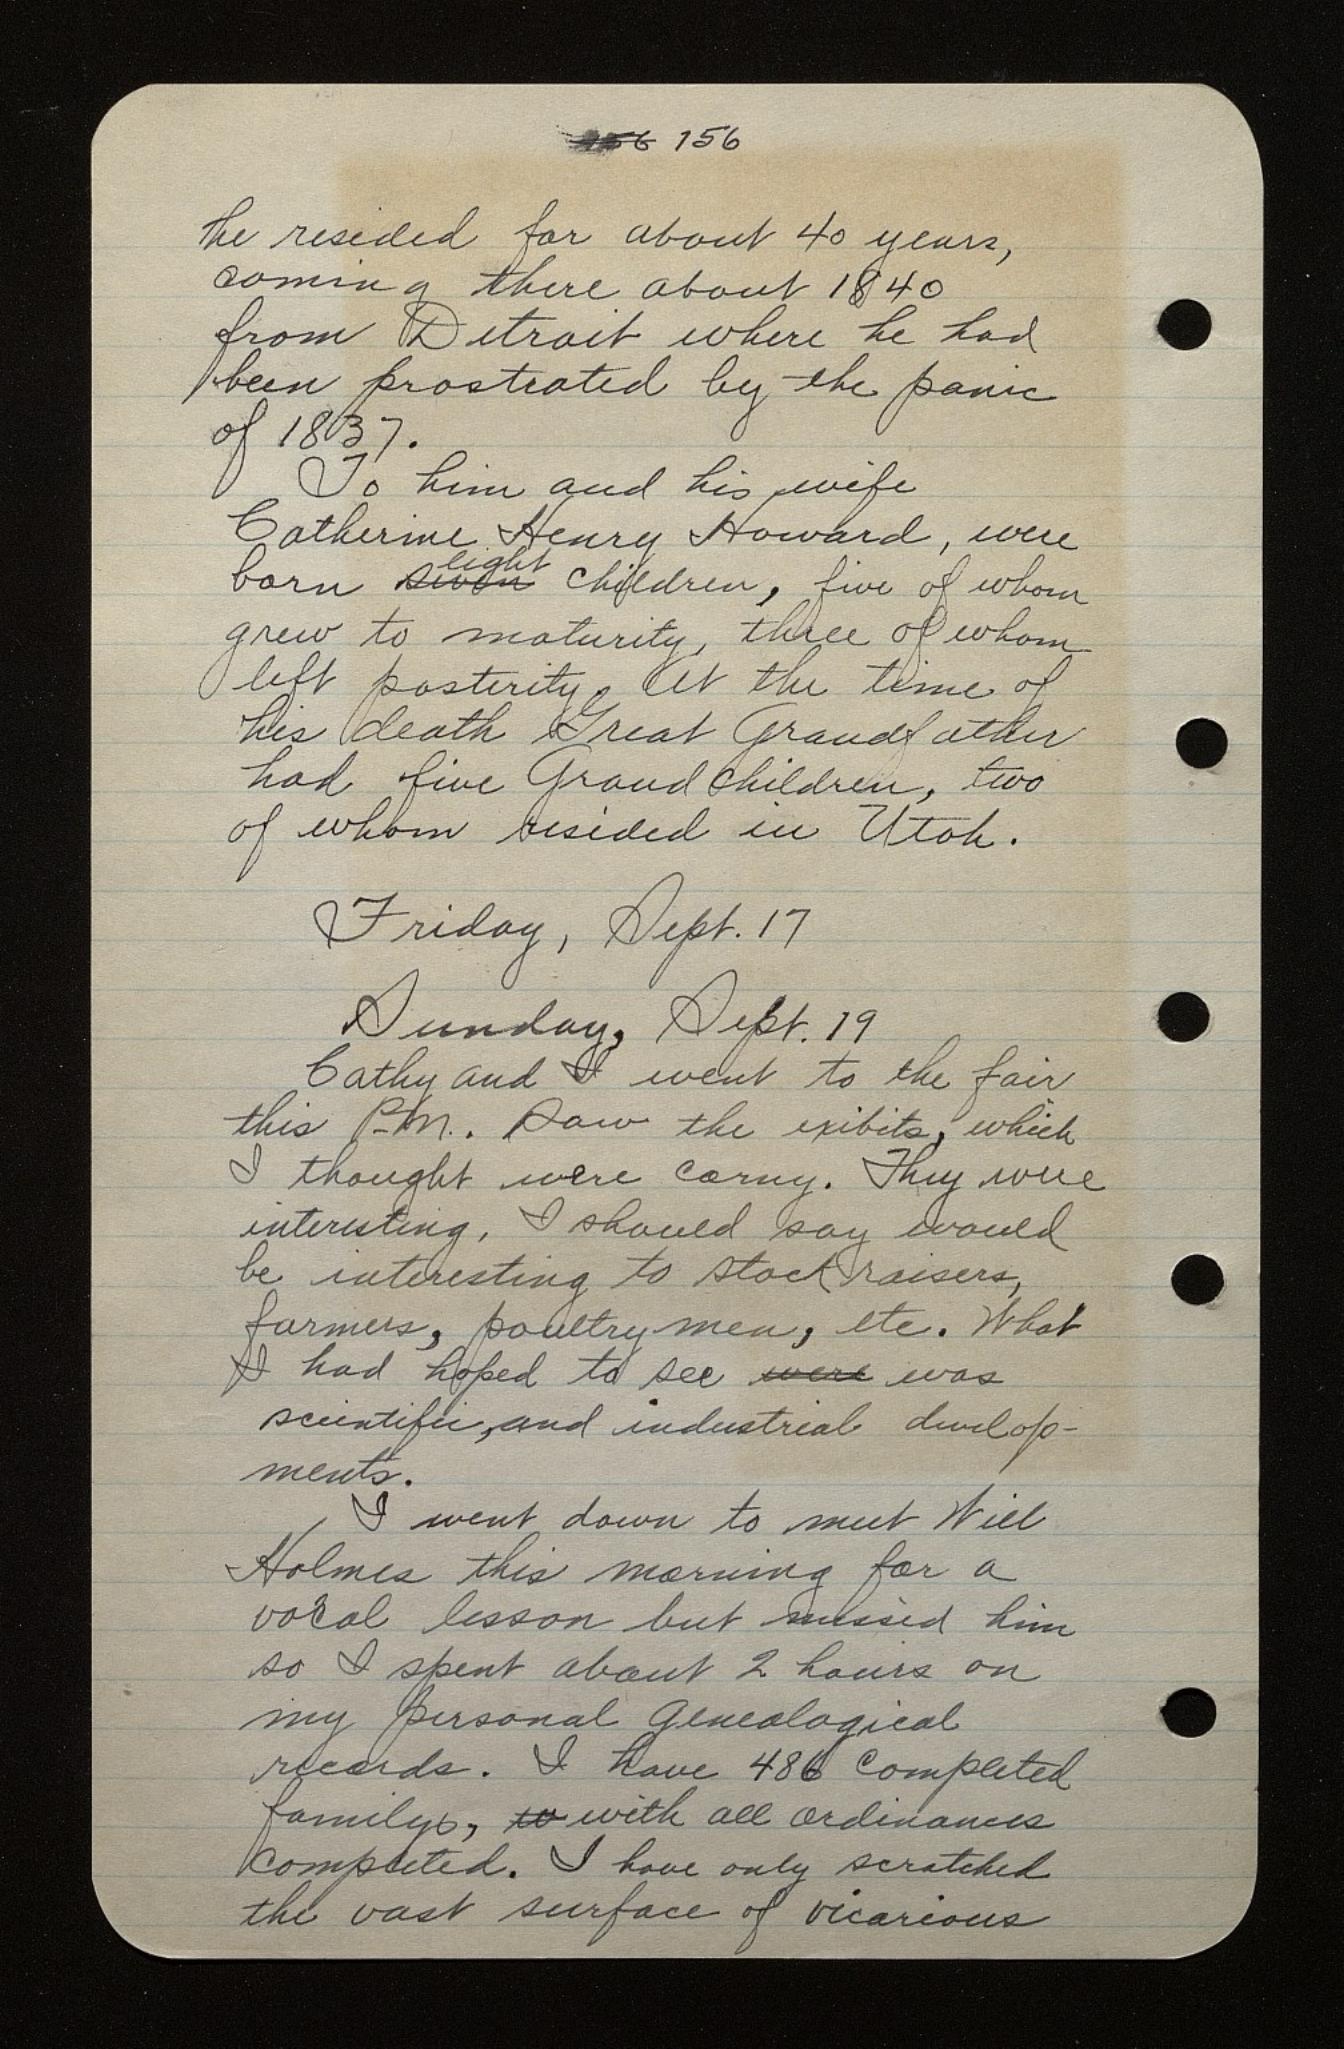 156 156
he resided for about 40 years,
coming there about 1840
from Detroit where he had
been prostrated by the panic
of 1837.
To him and his wife
Catherine Henry Howard, were
eight
born seven children, five of whom
grew to maturity, three of whom
left posterity. At the time of
his death Great Grandfather
had five Grandchildren, two
of whom resided in Utah.
Friday, Sept. 17
Sunday, Sept. 19
Cathy and I went to the fair
this P.M. Saw the exibits, which
I thought were corny. They were
interesting, I should say would
be interesting to stock raisers,
farmers, poultry men, etc. What
I had hoped to see were was
scientific, and industrial develop-
ments.
I went down to meet Will
Holmes this morning for a
vocal lesson but missed him
so I spent about 2 hours on
my personal genealogical
records. I have 486 completed
familys, w with all ordinances
completed. I have only scratched
the vast surface of vicarious